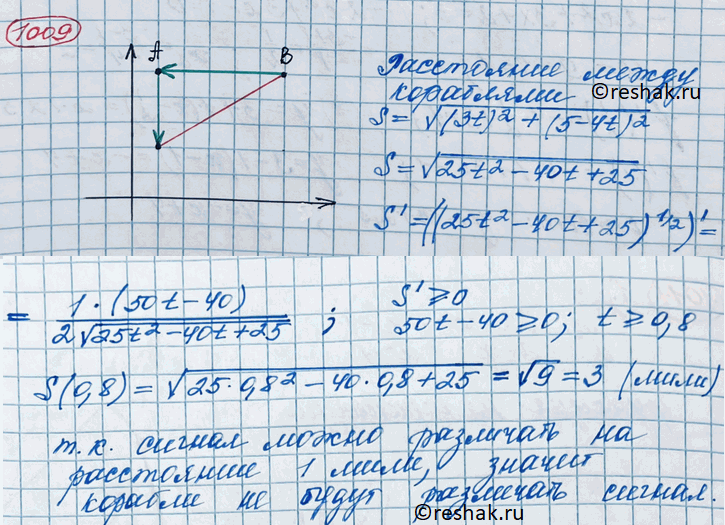 1009
A B
Расстояние между
кораблями
©reshak.ru
S = √((3t)² + (5-4t)²)
S = √(25t² - 40t + 25)
S' = ((25t² - 40t + 25)^1/2)' =
= 1·(50t - 40) / 2√(25t² - 40t + 25) ; S' ≥ 0
50t - 40 ≥ 0; t ≥ 0,8
S(0,8) = √(25·0,8² - 40·0,8 + 25) = √9 = 3 (мили)
т.к. сигнал можно различать на
расстояние 1 мили, значит
корабли не будут различать сигнал.
©reshak.ru